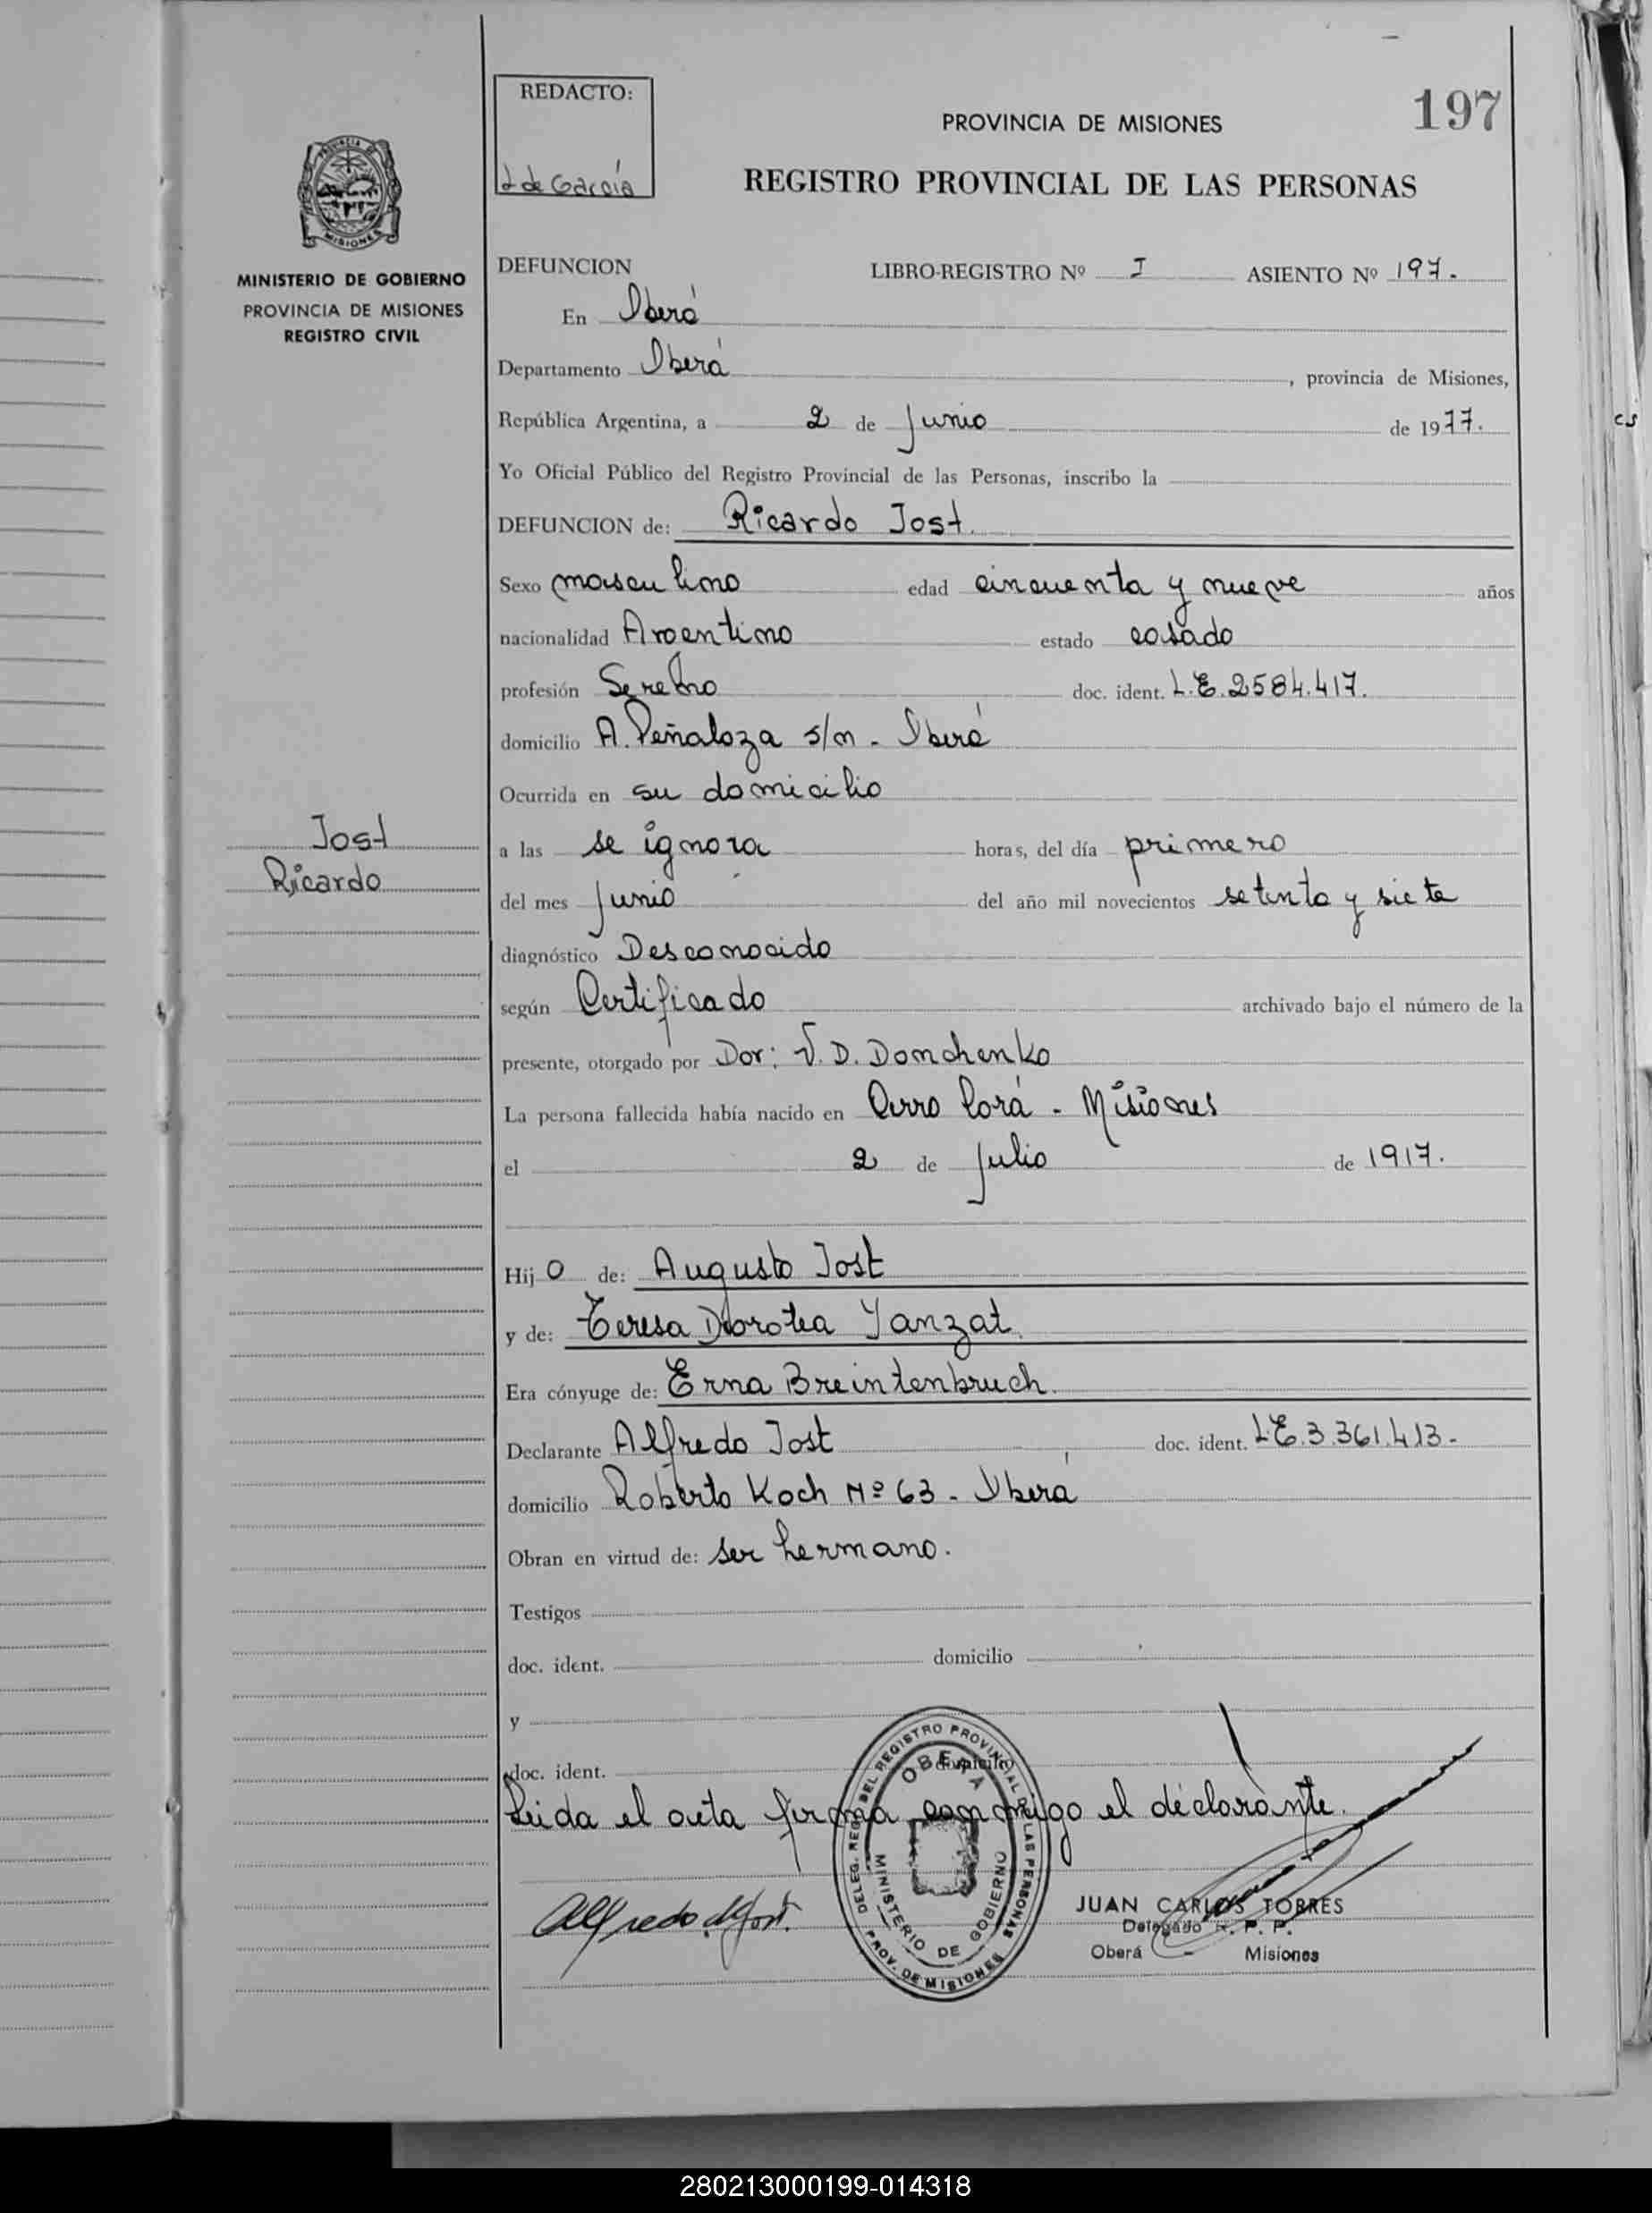 197
REDACTO:
L de García
PROVINCIA DE MISIONES
REGISTRO PROVINCIAL DE LAS PERSONAS
PROVINCIA DE
MISIONES
MINISTERIO DE GOBIERNO
PROVINCIA DE MISIONES
REGISTRO CIVIL
DEFUNCION LIBRO-REGISTRO Nº I ASIENTO Nº 197.
En Oberá
Departamento Oberá, provincia de Misiones,
República Argentina, a 2 de Junio de 1977.
Yo Oficial Público del Registro Provincial de las Personas, inscribo la
DEFUNCION de: Ricardo Jost.
Sexo masculino edad cincuenta y nueve años
nacionalidad Argentino estado casado
profesión Sereno doc. ident. L.E. 2584.417.
domicilio A. Peñaloza s/n - Oberá
Ocurrida en su domicilio
Jost
Ricardo
a las se ignora horas, del día primero
del mes Junio del año mil novecientos setenta y siete
diagnóstico Desconocido
según Certificado archivado bajo el número de la
presente, otorgado por Dor: V. D. Domchenko
La persona fallecida había nacido en Cerro Corá - Misiones
el 2 de Julio de 1917.
Hijo de: Augusto Jost
y de: Teresa Dorotea Yanzat.
Era cónyuge de: Erna Breintenbruch.
Declarante Alfredo Jost doc. ident. L.E. 3.361.413-
domicilio Roberto Koch Nº 63 - Oberá
Obran en virtud de: ser hermano.
Testigos
doc. ident. domicilio
y
doc. ident. domicilio
Leida el acta firma conmigo el declarante.
DELEG. REG. DEL REGISTRO PROVINCIAL DE LAS PERSONAS
OBERA
MINISTERIO DE GOBIERNO
PROV. DE MISIONES
Alfredo Jost.
JUAN CARLOS TORRES
Delegado R. P. P.
Oberá - Misiones
cs
280213000199-014318